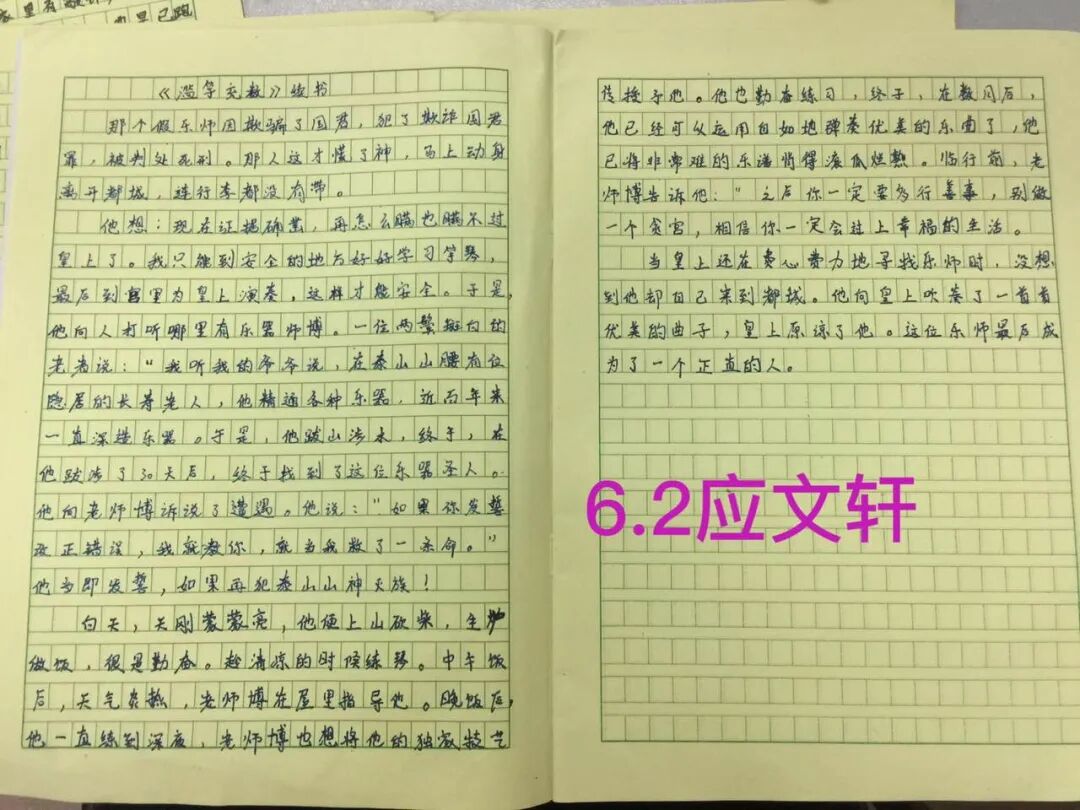 家里有
里已跑
《滥竽充数》续书
那个假乐师因欺骗了国君，犯了欺诈国君
罪，被判处死刑。那人这才慌了神，马上动身
离开都城，连行李都没有带。
他想：现在证据确凿，再怎么瞒也瞒不过
皇上了。我只能到安全的地方好好学习竽琴，
最后到宫里为皇上演奏，这样才能安全。于是，
他向人打听哪里有乐器师博。一位两鬓斑白的
老者说："我听我的爷爷说，在泰山山腰有位
隐居的长寿老人，他精通各种乐器，近百年来
一直深造乐器。于是，他跋山涉水，终于，在
他跋涉了30天后，终于找到了这位乐器圣人。
他向老师博诉说了遭遇。他说："如果你发誓
改正错误，我就教你，就当我救了一条命。"
他当即发誓，如果再犯泰山山神灭族！
白天，天刚蒙蒙亮，他便上山砍柴，生炉
做饭，很是勤奋。趁清凉的时候练琴。中午饭
后，天气炎热，老师博在屋里指导他。晚饭后，
他一直练到深夜，老师博也想将他的独家技艺
传授予他。他也勤奋练习，终于，在数月后，
他已经可以运用自如地弹奏优美的乐曲了，他
已将非常难的乐谱背得滚瓜烂熟。临行前，老
师博告诉他："之后你一定要多行善事，别做
一个贪官，相信你一定会过上幸福的生活。
当皇上还在费心费力地寻找乐师时，没想
到他却自己来到都城。他向皇上吹奏了一首首
优美的曲子，皇上原谅了他。这位乐师最后成
为了一个正直的人。
6.2应文轩